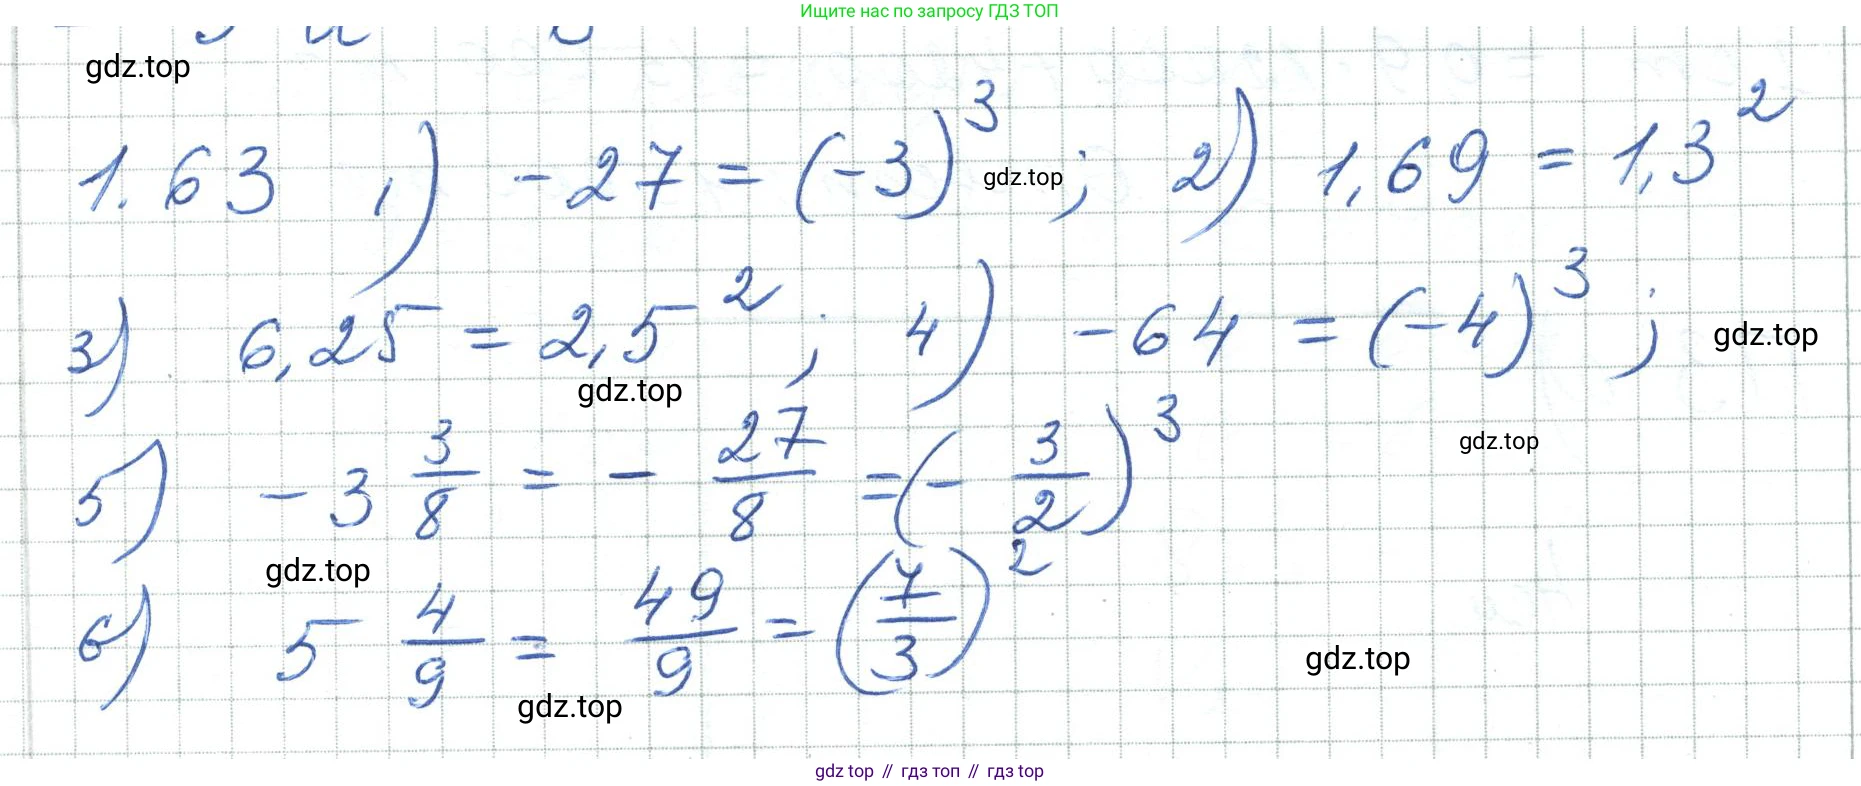 Ищите нас по запросу ГДЗ ТОП
gdz.top
1.63 1) -27 = (-3)³ ; 2) 1,69 = 1,3²
gdz.top
3) 6,25 = 2,5² ; 4) -64 = (-4)³ ;
gdz.top
gdz.top
5) -3 3/8 = - 27/8 = (- 3/2)³
gdz.top
gdz.top
6) 5 4/9 = 49/9 = (7/3)²
gdz.top
gdz.top
gdz top // гдз топ // гдз top